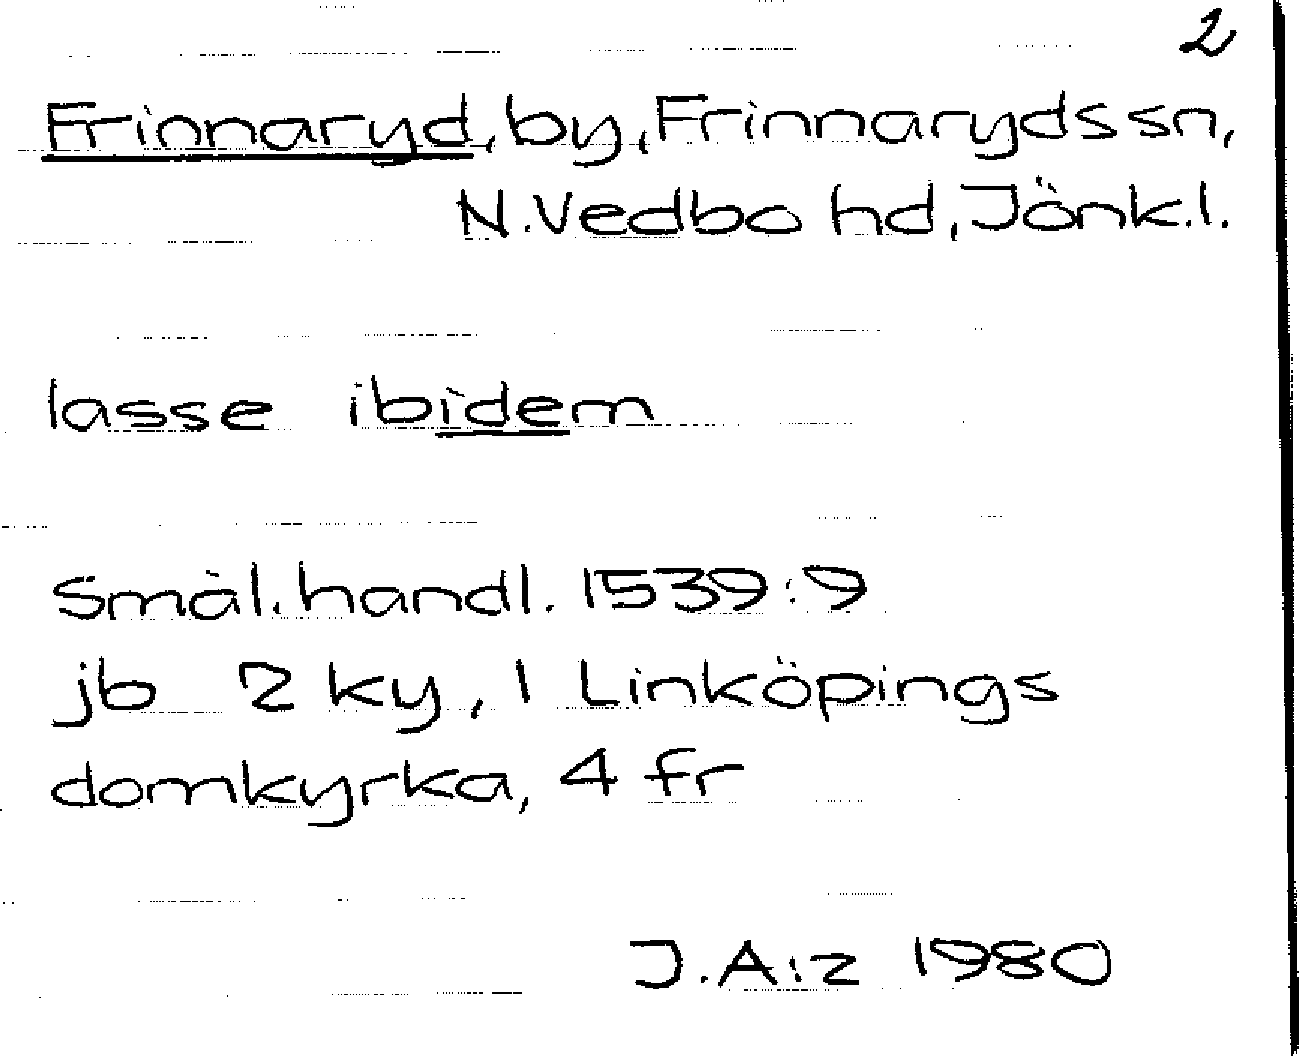 2
Frinnaryd, by, Frinnaryds sn,
N. Vedbo hd, Jönk. l.
lasse ibidem
Smål. handl. 1539:9
jb 2 ky, 1 Linköpings
domkyrka, 4 fr
J.A:z 1980